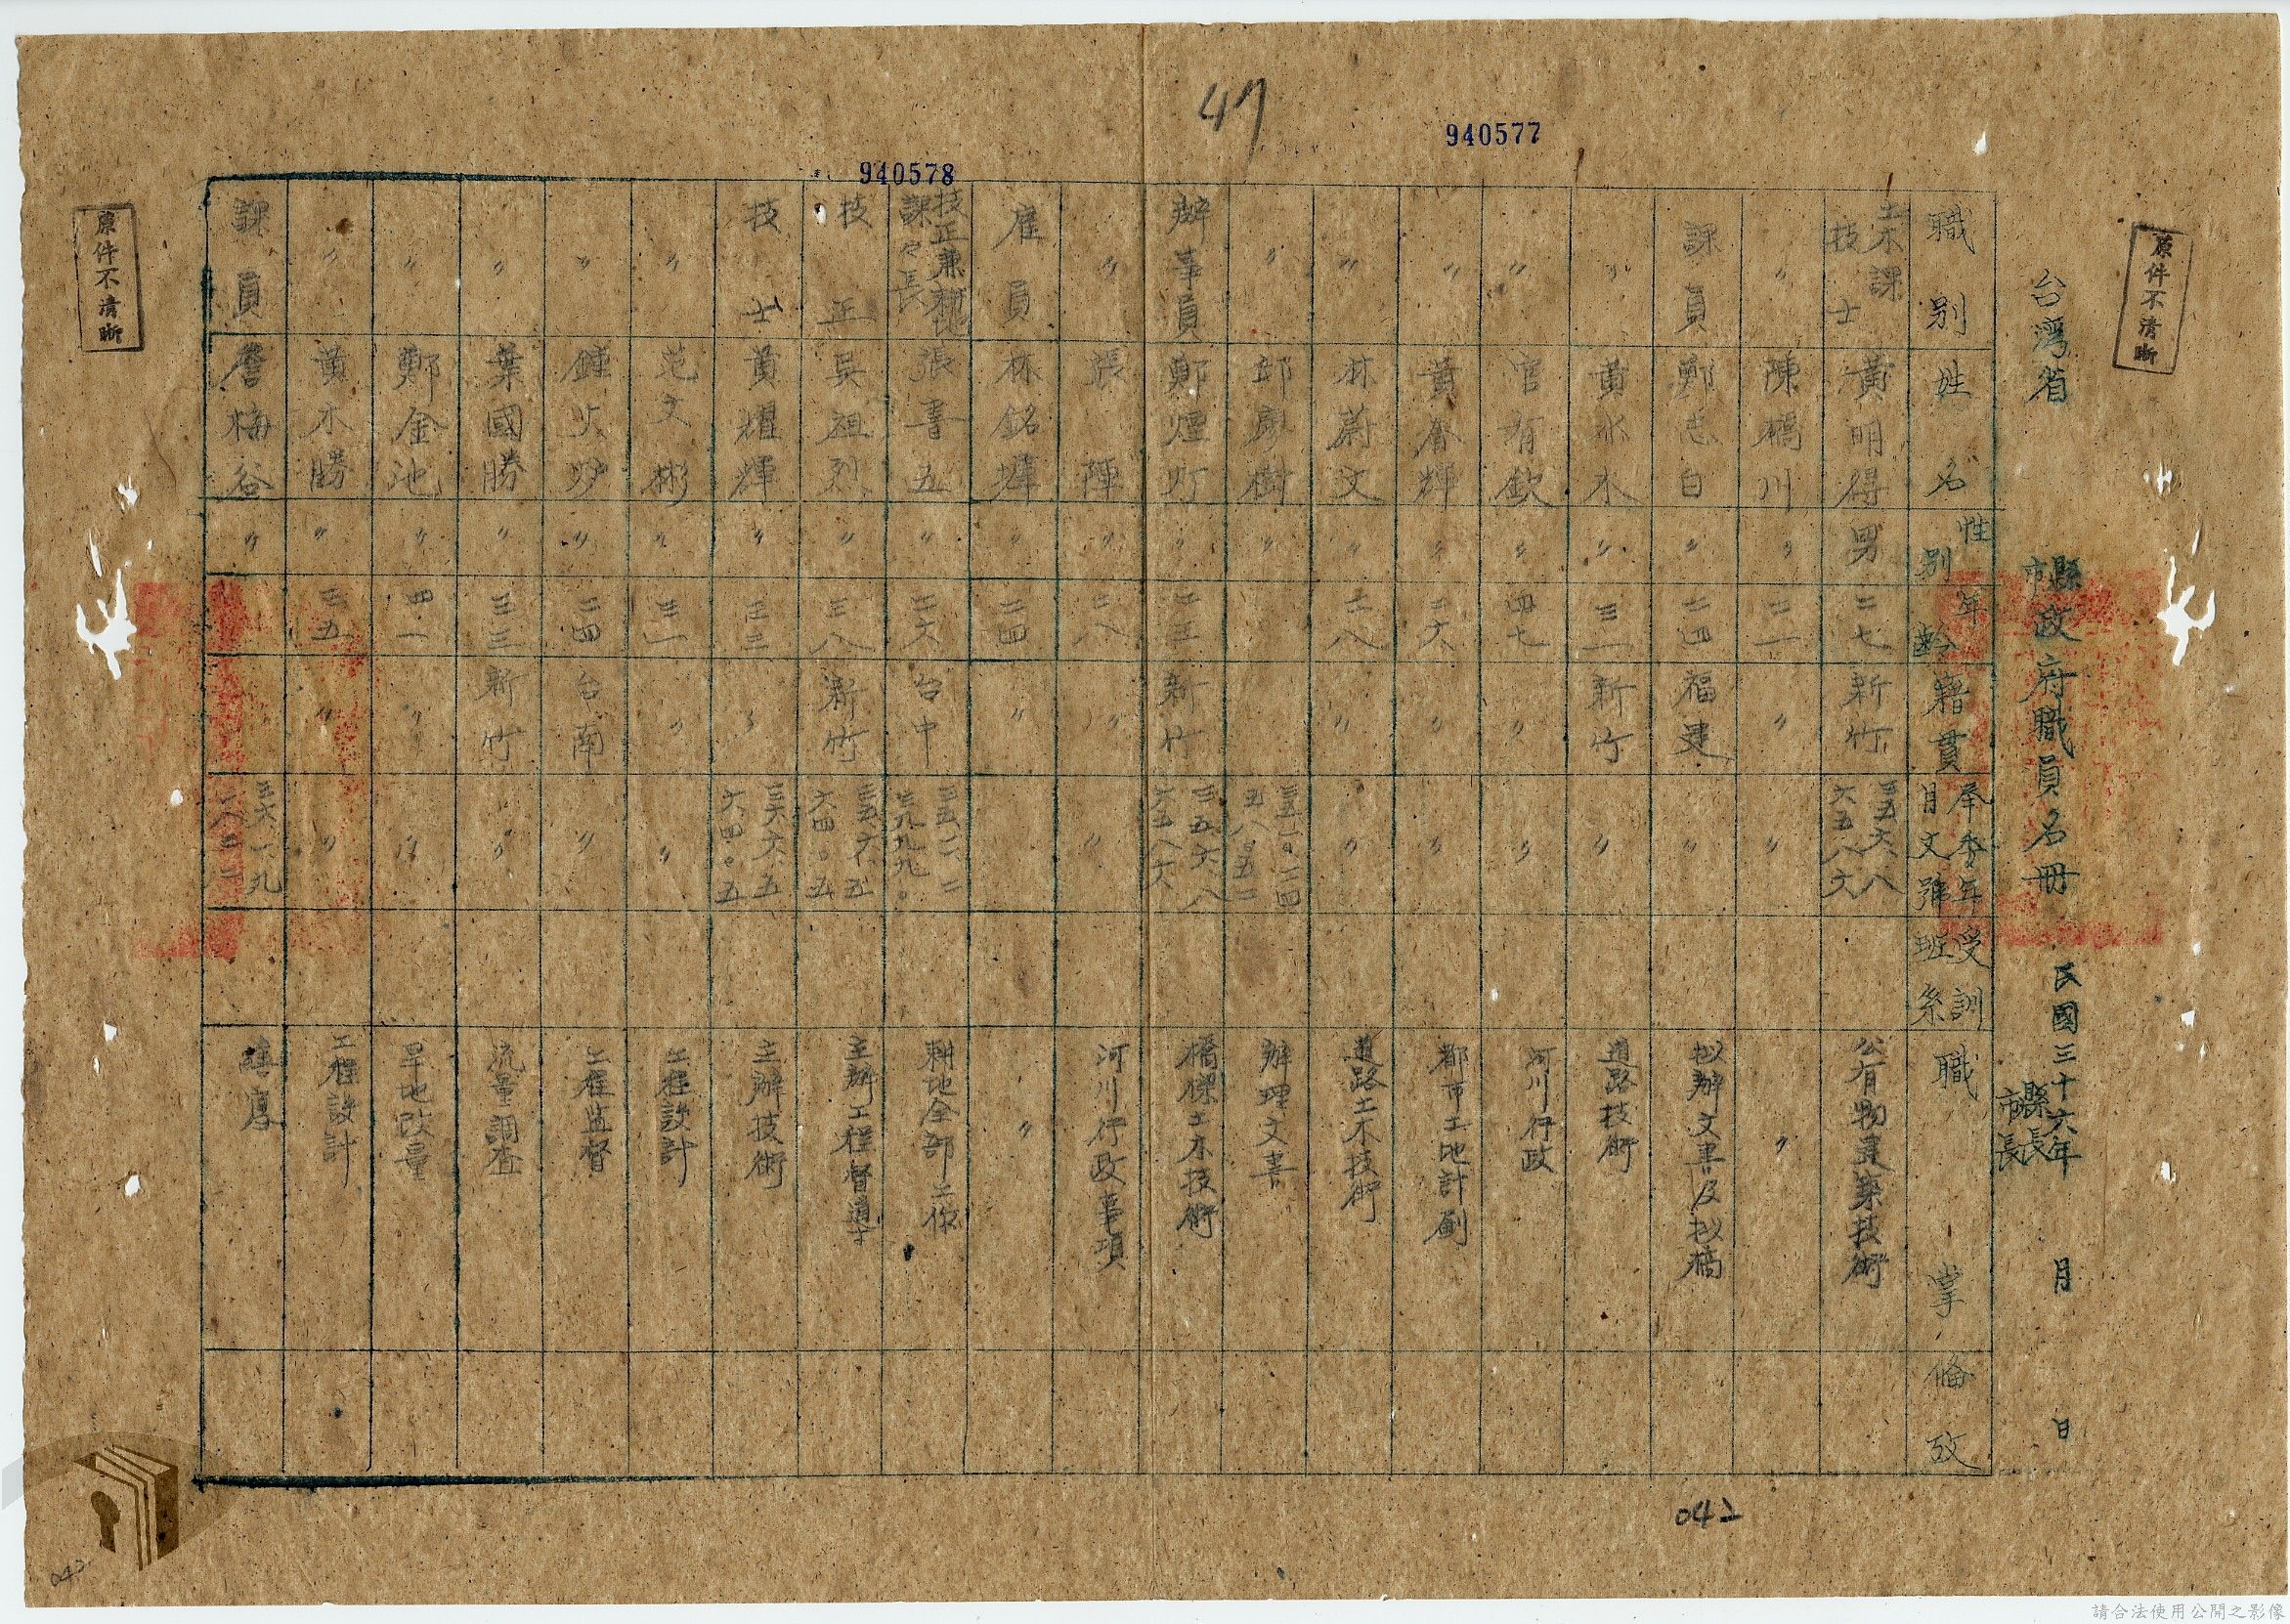 47
940577
940578
原件不清晰
台灣省 縣市政府職員名冊 民國三十六年 月 日
縣長
市長
職別 姓名 性別 年齡 籍貫 奉委年月文號 受訓班系 職掌 備攷
土木課技士 黃明得 男 二七 新竹 三五六八 六五八六 公有物建築技術
〃 陳橋川 〃 二一 〃 〃 〃
課員 鄭志白 〃 二四 福建 〃 拟辦文書及拟稿
〃 黃水木 〃 三一 新竹 〃 道路技術
〃 官有欽 〃 四七 〃 〃 河川行政
〃 黃春輝 〃 二六 〃 〃 都市土地計劃
〃 林蔚文 〃 二八 〃 〃 道路土木技術
〃 邱康樹 〃 辦理文書
辦事員 鄭煙灯 〃 二三 新竹 三五、六、八 六五八六 橋樑土木技術
〃 張陣 〃 二八 〃 〃 河川行政事項
雇員 林銘輝 〃 二四 〃 〃
技正兼耕地課々長 張書五 〃 二六 台中 耕地全部工作
技正 吳祖烈 〃 三八 新竹 三五、六、五 六四〇五 主辦工程督導
技士 黃耀輝 〃 三三 〃 三六、六、五 六四〇五 主辦技術
〃 范文彬 〃 三一 〃 〃 工程設計
〃 鍾火炉 〃 二四 台南 〃 工程監督
〃 葉國勝 〃 三三 新竹 〃 流量調查
〃 鄭金池 〃 四一 〃 〃 旱地改量
〃 黃木勝 〃 三五 〃 〃 工程設計
課員 詹梅谷 〃 三六、一、九
原件不清晰
042
042
請合法使用公開之影像